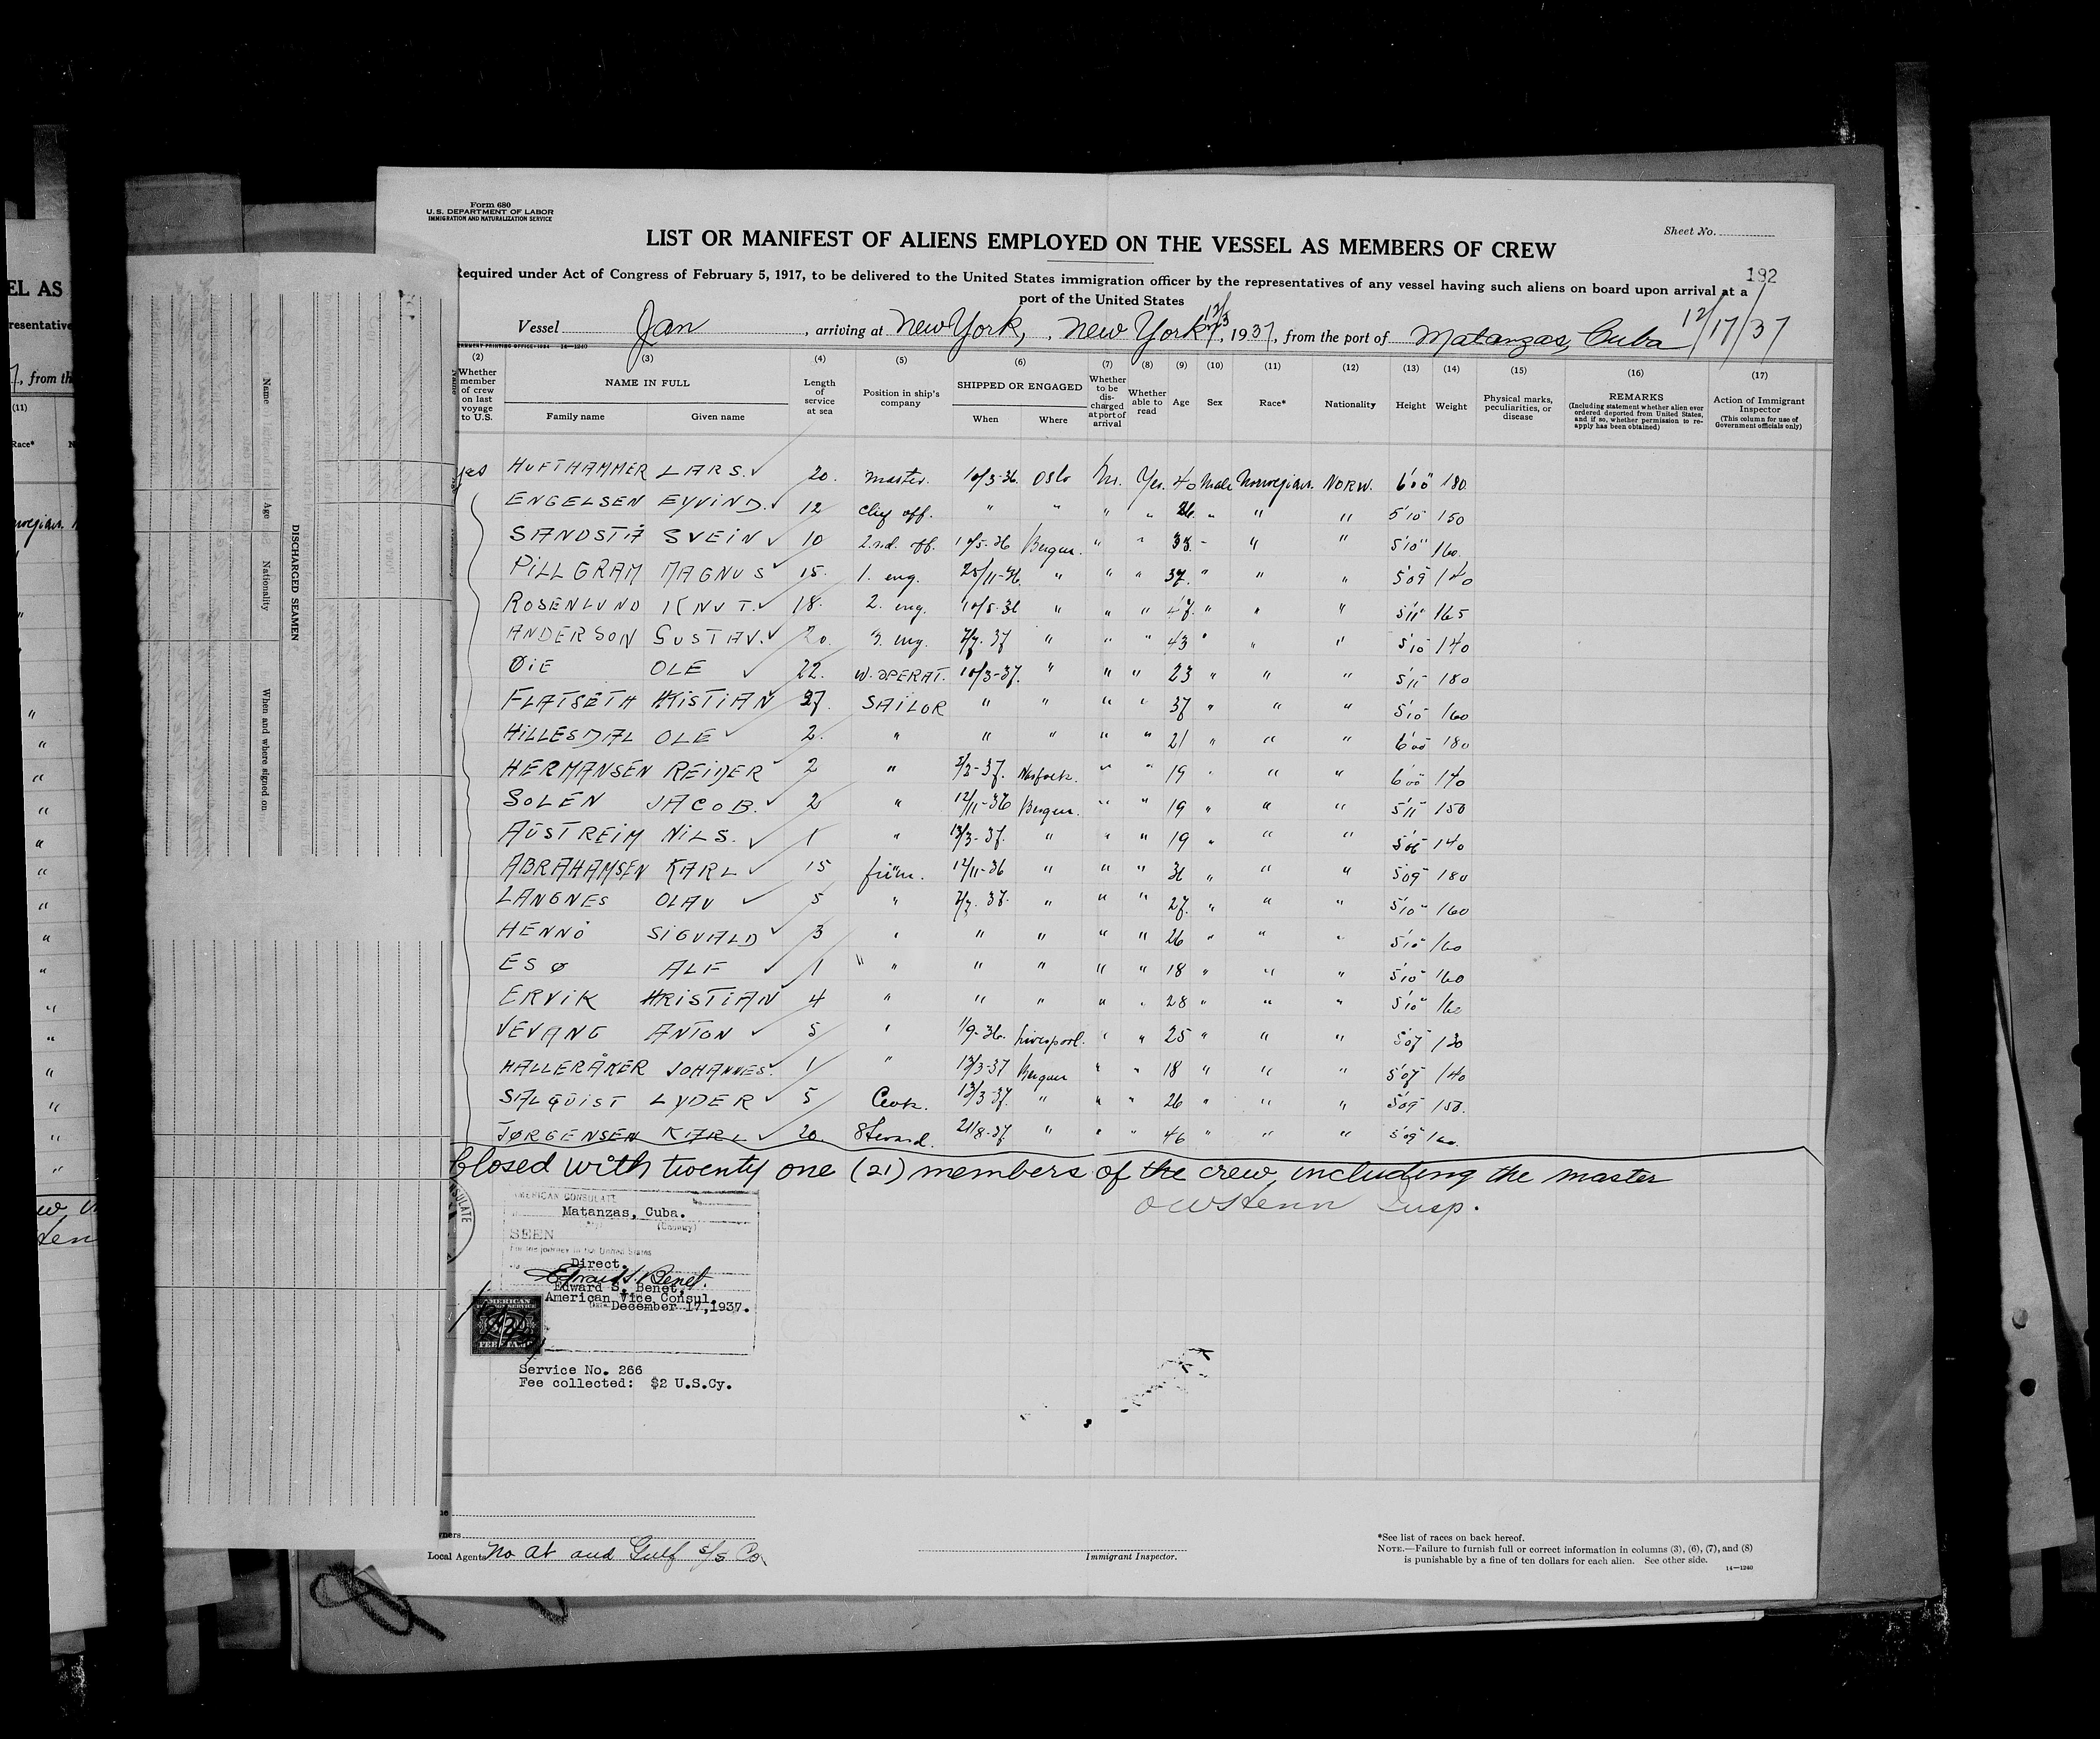 Form 680
U.S. DEPARTMENT OF LABOR
IMMIGRATION AND NATURALIZATION SERVICE
Sheet No.
LIST OR MANIFEST OF ALIENS EMPLOYED ON THE VESSEL AS MEMBERS OF CREW
Required under Act of Congress of February 5, 1917, to be delivered to the United States immigration officer by the representatives of any vessel having such aliens on board upon arrival at a
port of the United States
192
Vessel Jan, arriving at New York, New York, 1937, from the port of Matanzas, Cuba 12/17/37
(2) (3) (4) (5) (6) (7) (8) (9) (10) (11) (12) (13) (14) (15) (16) (17)
Whether member of crew on last voyage to U.S.
NAME IN FULL
Family name Given name
Length of service at sea
Position in ship's company
SHIPPED OR ENGAGED
When Where
Whether to be discharged at port of arrival
Whether able to read
Age
Sex
Race*
Nationality
Height
Weight
Physical marks, peculiarities, or disease
REMARKS
(Including statement whether alien ever ordered deported from United States, and if so, whether permission to reapply has been obtained)
Action of Immigrant Inspector
(This column for use of Government officials only)
yes HUFTHAMMER LARS. 20. master. 10/3-36. Oslo No. Yes. 40 male Norwegian. NORW. 6'00" 180.
ENGELSEN EYVIND. 12 chef off. " " " " 26. " " " 5'10" 150
SANDSTÅ SVEIN 10 2.nd. off. Bergen. " " 38. " " 5'10" 160.
PILLGRAM MAGNUS 15. 1. eng. 25/11-36 " " " 37. " " " 5'09" 140
ROSENLUND KNUT. 18. 2. eng. 10/5-36 " " " 47. " " " 5'11" 165
ANDERSON GUSTAV. 20. 3. eng. " " " 43 " " " 5'10" 140
ØIE OLE 22. W. OPERAT. 10/3-37. " " " 23 " " " 5'11" 180
FLATSETH KRISTIAN 27. SAILOR " " " " 37 " " " 5'10" 160
HILLESDAL OLE 2. " " " " " 21 " " " 6'00" 180
HERMANSEN REIDER 2 " Norfolk. " " 19 " " " 6'00" 140
SOLEN JACOB. 2 " 12/11-36 Bergen. " " 19 " " " 5'11" 150
AUSTREIM NILS. 1 " 13/3-37. " " " 19 " " " 5'06" 140
ABRAHAMSEN KARL 15 firem. 12/11-36 " " " " " " 5'09" 180
LANGNES OLAV 5 " " " " 27. " " " 5'10" 160
HENNO SIGVALD 3 " " " " " 26 " " " 5'10" 160
ESØ ALF 1 " " " " " 18 " " " 5'10" 160
ERVIK KRISTIAN 4 " " " " " 28 " " " 5'10" 160
VEVANG ANTON 5 " 1/9-36. Liverpool. " " 25 " " " 5'07" 130
HALLERÅKER JOHANNES. 1 " 13/3-37 Bergen " " 18 " " " 5'07" 140
SALQUIST LYDER 5 Cook. 13/3-37. " " " 26 " " " 5'09" 150.
JØRGENSEN KARL 20. Steward. 21/8-37. " " " 46 " " " 5'09" 160.
Closed with twenty one (21) members of the crew, including the master
Insp.
AMERICAN CONSULATE
Matanzas, Cuba.
(Country)
SEEN
For the journey to the United States
Direct.
Edward S. Benet,
American Vice Consul.
December 17, 1937.
AMERICAN
Service No. 266
Fee collected: $2 U.S.Cy.
Local Agents No At and Gulf S/S Co.
Immigrant Inspector.
*See list of races on back hereof.
NOTE.—Failure to furnish full or correct information in columns (3), (6), (7), and (8)
is punishable by a fine of ten dollars for each alien. See other side.
14—1240
DISCHARGED SEAMEN
Name
Age
Nationality
When and where signed on
EL AS
resentative
, from th
(11)
Race*